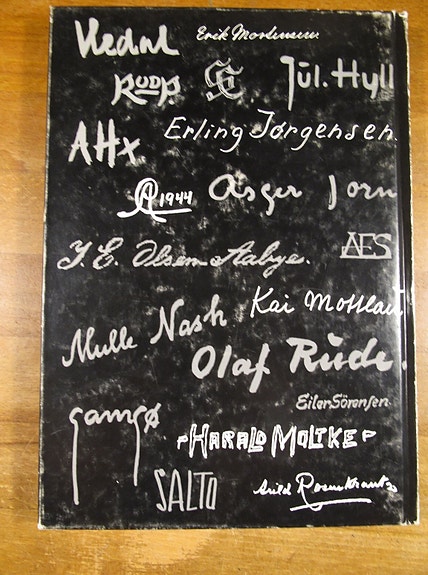 Erik Mortensen.
Jul. Hyll
Erling Jørgensen.
AHx
1944
Asger Jorn
J. E. Olsen Aabye.
AES
Kai Mottlau
Mulle Nash
Olaf Rude.
Eiler Sörensen
gamgø
HARALD MOLTKE
SALTO
Arild Rosenkrantz